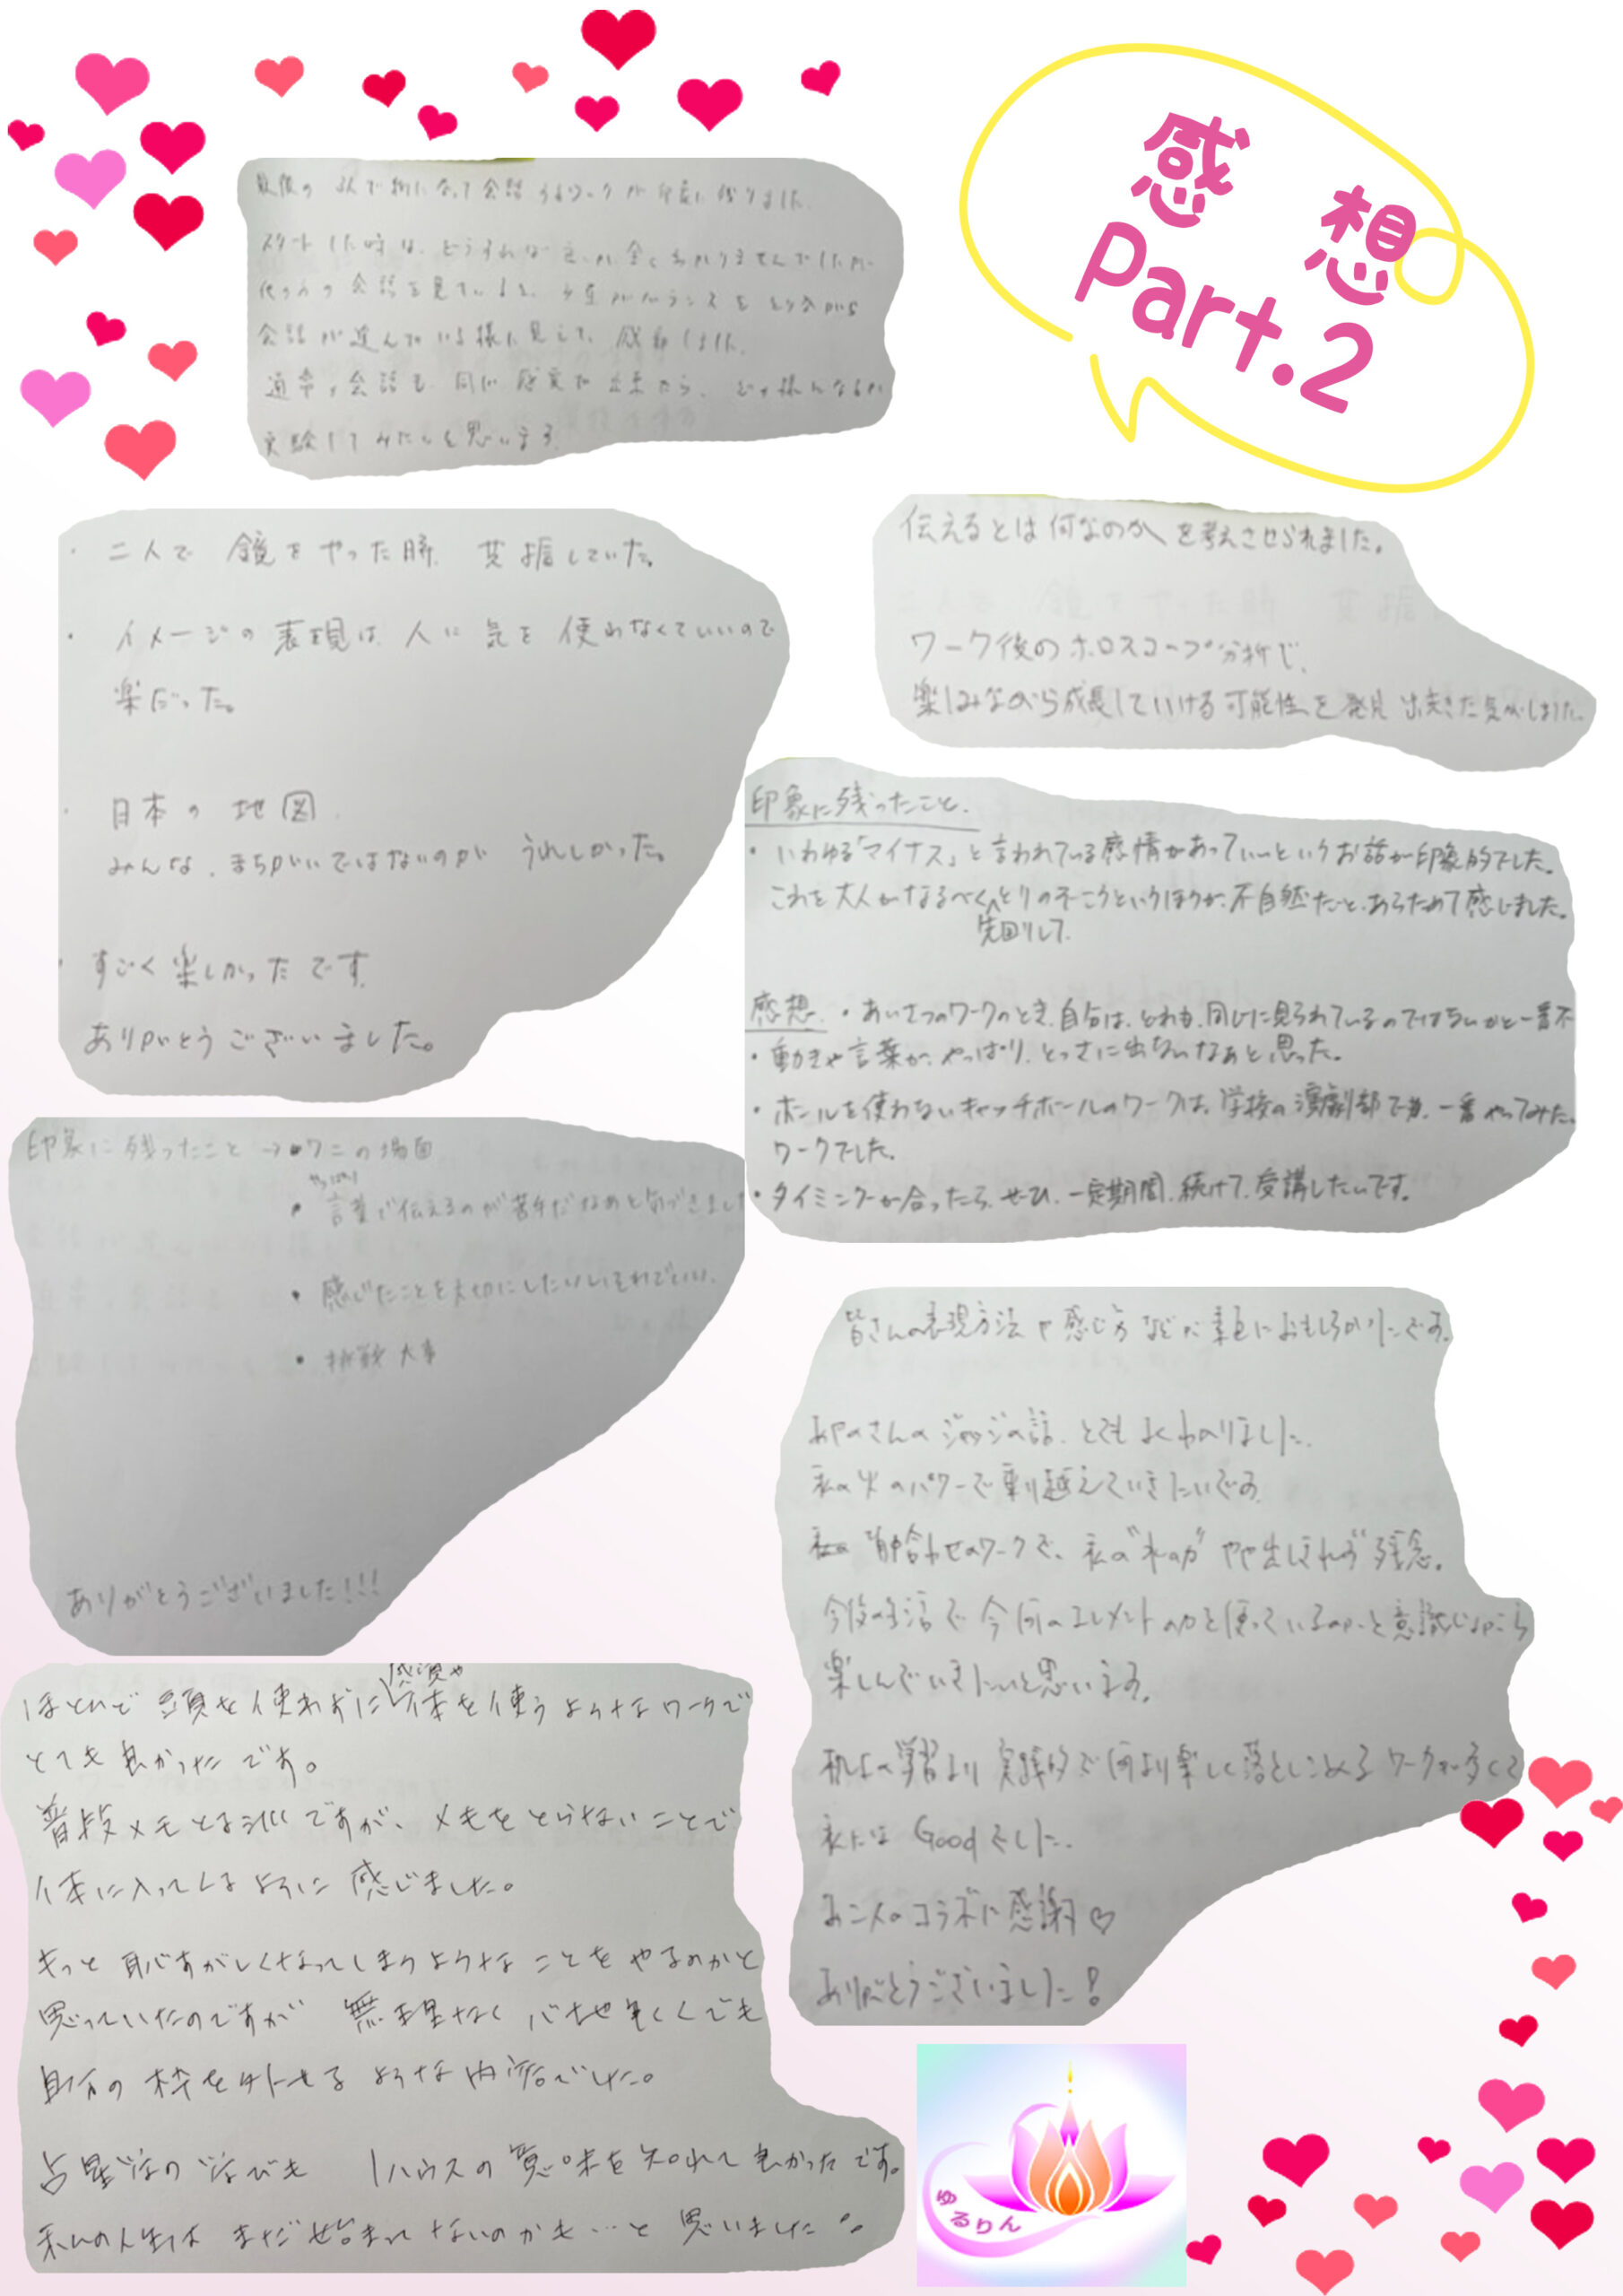 感想
Part.2
最後の3人で組になって会話するワークが印象に残りました。
スタートした時は、どうすれば良いか全くわかりませんでしたが
他の方の会話を見ていると、お互いがバランスをとりながら
会話が進んでいる様に見えて、感動しました。
通常の会話も同じ感覚で出来たら、どの様になるか
実験してみたいと思います。
・二人で 鏡をやった時、共振していた。
・イメージの表現は、人に気を使わなくていいので
楽だった。
・日本の地図
みんな、まちがいではないのが うれしかった。
・すごく楽しかったです。
ありがとうございました。
伝えるとは何なのか、を考えさせられました。
ワーク後のホロスコープ分析で、
楽しみながら成長していける可能性を発見出来た気がしました。
印象に残ったこと
・いわゆる「マイナス」と言われている感情があっていいというお話が印象的でした。
これを大人がなるべく先回りしてとりのぞこうというほうが、不自然だと、あらためて感じました。
感想 ・あいさつのワークのとき、自分は、どれも、同じに見られているのではないかと一番不
・動きや言葉が、やっぱり、とっさに出ないなぁと思った。
・ボールを使わないキャッチボールのワークは、学校の演劇部でも、一番やってみた
ワークでした。
・タイミングが合ったら、ぜひ、一定期間、続けて、受講したいです。
印象に残ったこと → ・ワニの場面
・やっぱり言葉で伝えるのが苦手だなぁと気づきまし
・感じたことを大切にしたいしそれでいい。
・挑戦大事
ありがとうございました!!!
皆さんの表現方法や感じ方などが素直におもしろかったです。
さんのジャッジの話、とてもよくわかりました。
私の火のパワーで乗り越えていきたいです。
背中合わせのワークで、私の
今後の生活で今何のエレメントの力を使っているのか、と意識しながら
楽しんでいきたいと思います。
机上の学習より実践的で何より楽しく落としこめるワークが多くて
私には Good でした。
お二人のコラボに感謝♡
ありがとうございました!
ほとんど頭を使わずに感覚や体を使うようなワークで
とても良かったです。
普段メモとる派ですが、メモをとらないことで
体に入ってくるように感じました。
もっと恥ずかしくなってしまうようなことをやるのかと
思っていたのですが 無理なく 心地良く でも
自分の枠を外せるような内容でした。
占星学の学びも 1ハウスの意味を知れて良かったです。
私の人生はまだ始まってないのかも…と思いました
ゆるりん